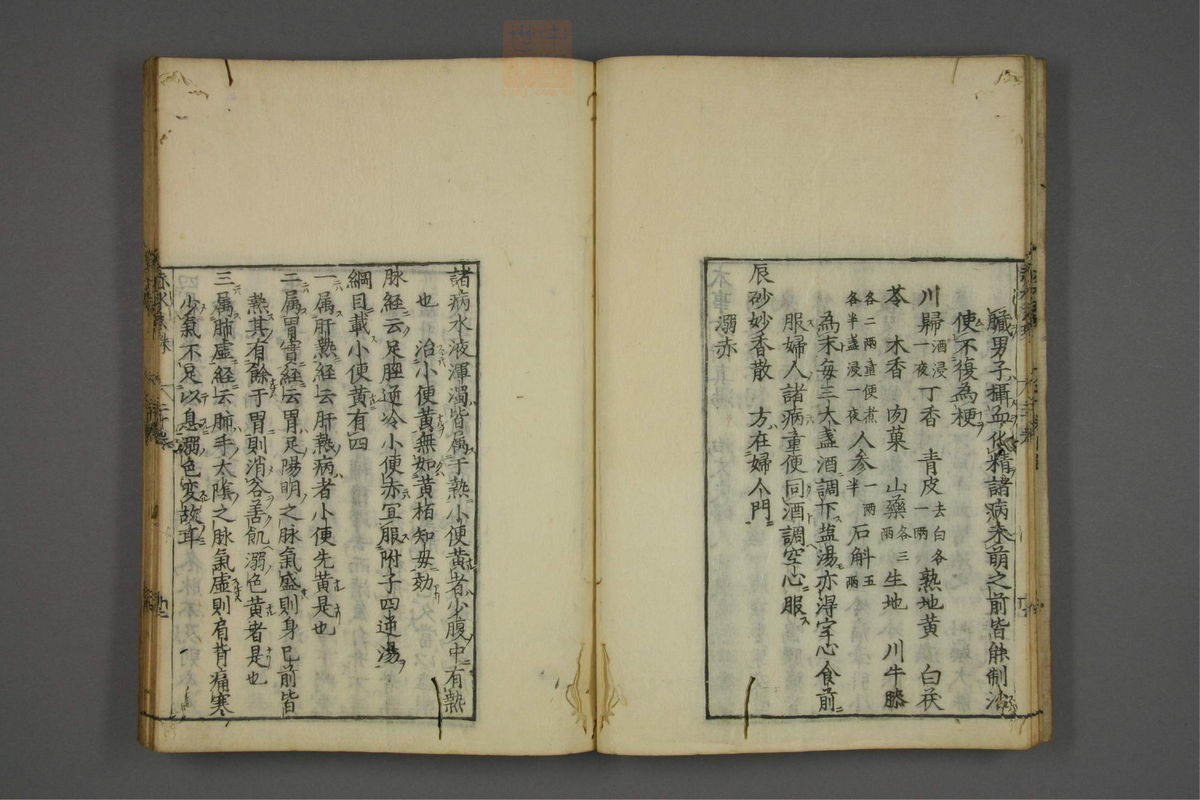 臓男子攝血化精諸病未萠之前皆能制治
使不復為梗
川歸酒浸一夜 丁香 青皮去白各一両 熟地黄 白茯
苓 木香 肉菓 山藥各三両 生地 川牛膝
各二両童便煮各半盞浸一夜 人参半一両 石斛五両
為末每三大盞酒調下盐湯亦得空心食前
服婦人諸病童便同酒調空心服
辰砂妙香散 方在婦人門
溺赤
諸病水液渾濁皆属于熱小便黄者少腹中有熱
也 治小便黄無如黄栢知毋効
脉経云足脛逆冷小便赤宜服附子四逆湯
綱目載小便黄有四
一属肝熱経云肝熱病者小便先黄是也
二属胃實経云胃足陽明之脉氣盛則身已前皆
熱其有餘于胃則消谷善飢溺色黄者是也
三属肺虚経云肺手太陰之脉氣虚則肩背痛寒
少氣不足以息溺色変故耳